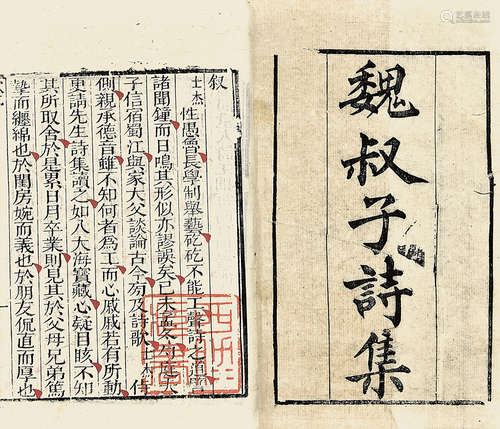 魏叔子詩集
叙
士杰性愚魯長學制舉藝矻矻不能工聲詩之道
諸聞鐘而日鳴其形似亦謬誤矣己未孟冬
子信宿蜀江與家大父談論古今旁及詩歌士杰侍
側親承德音雖不知何者為工而心戚戚若有所動
更請先生詩集讀之如入大海寶藏心疑目眩不知
其所取舍於是累日月卒業則見其於父母兄弟篤
摯而纏綿也於閨房婉而義也於朋友侃直而厚也